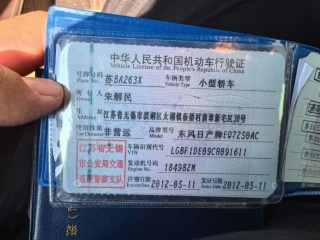 中华人民共和国机动车行驶证
Vehicle License of the People's Republic of China
号牌号码 苏BA263X 车辆类型 小型轿车
Plate No. Vehicle Type
所有人 朱解民
住址 江苏省无锡市滨湖区太湖镇板桥村
非营运 品牌型号 东风日产牌EQ7250AC
江苏省无锡 车辆识别代号 LGBF1DE09CR091611
VIN
市公安局交通 发动机号码 184982M
Engine No.
巡逻警察支队 注册日期 2012-05-11 发证日期 2012-05-11